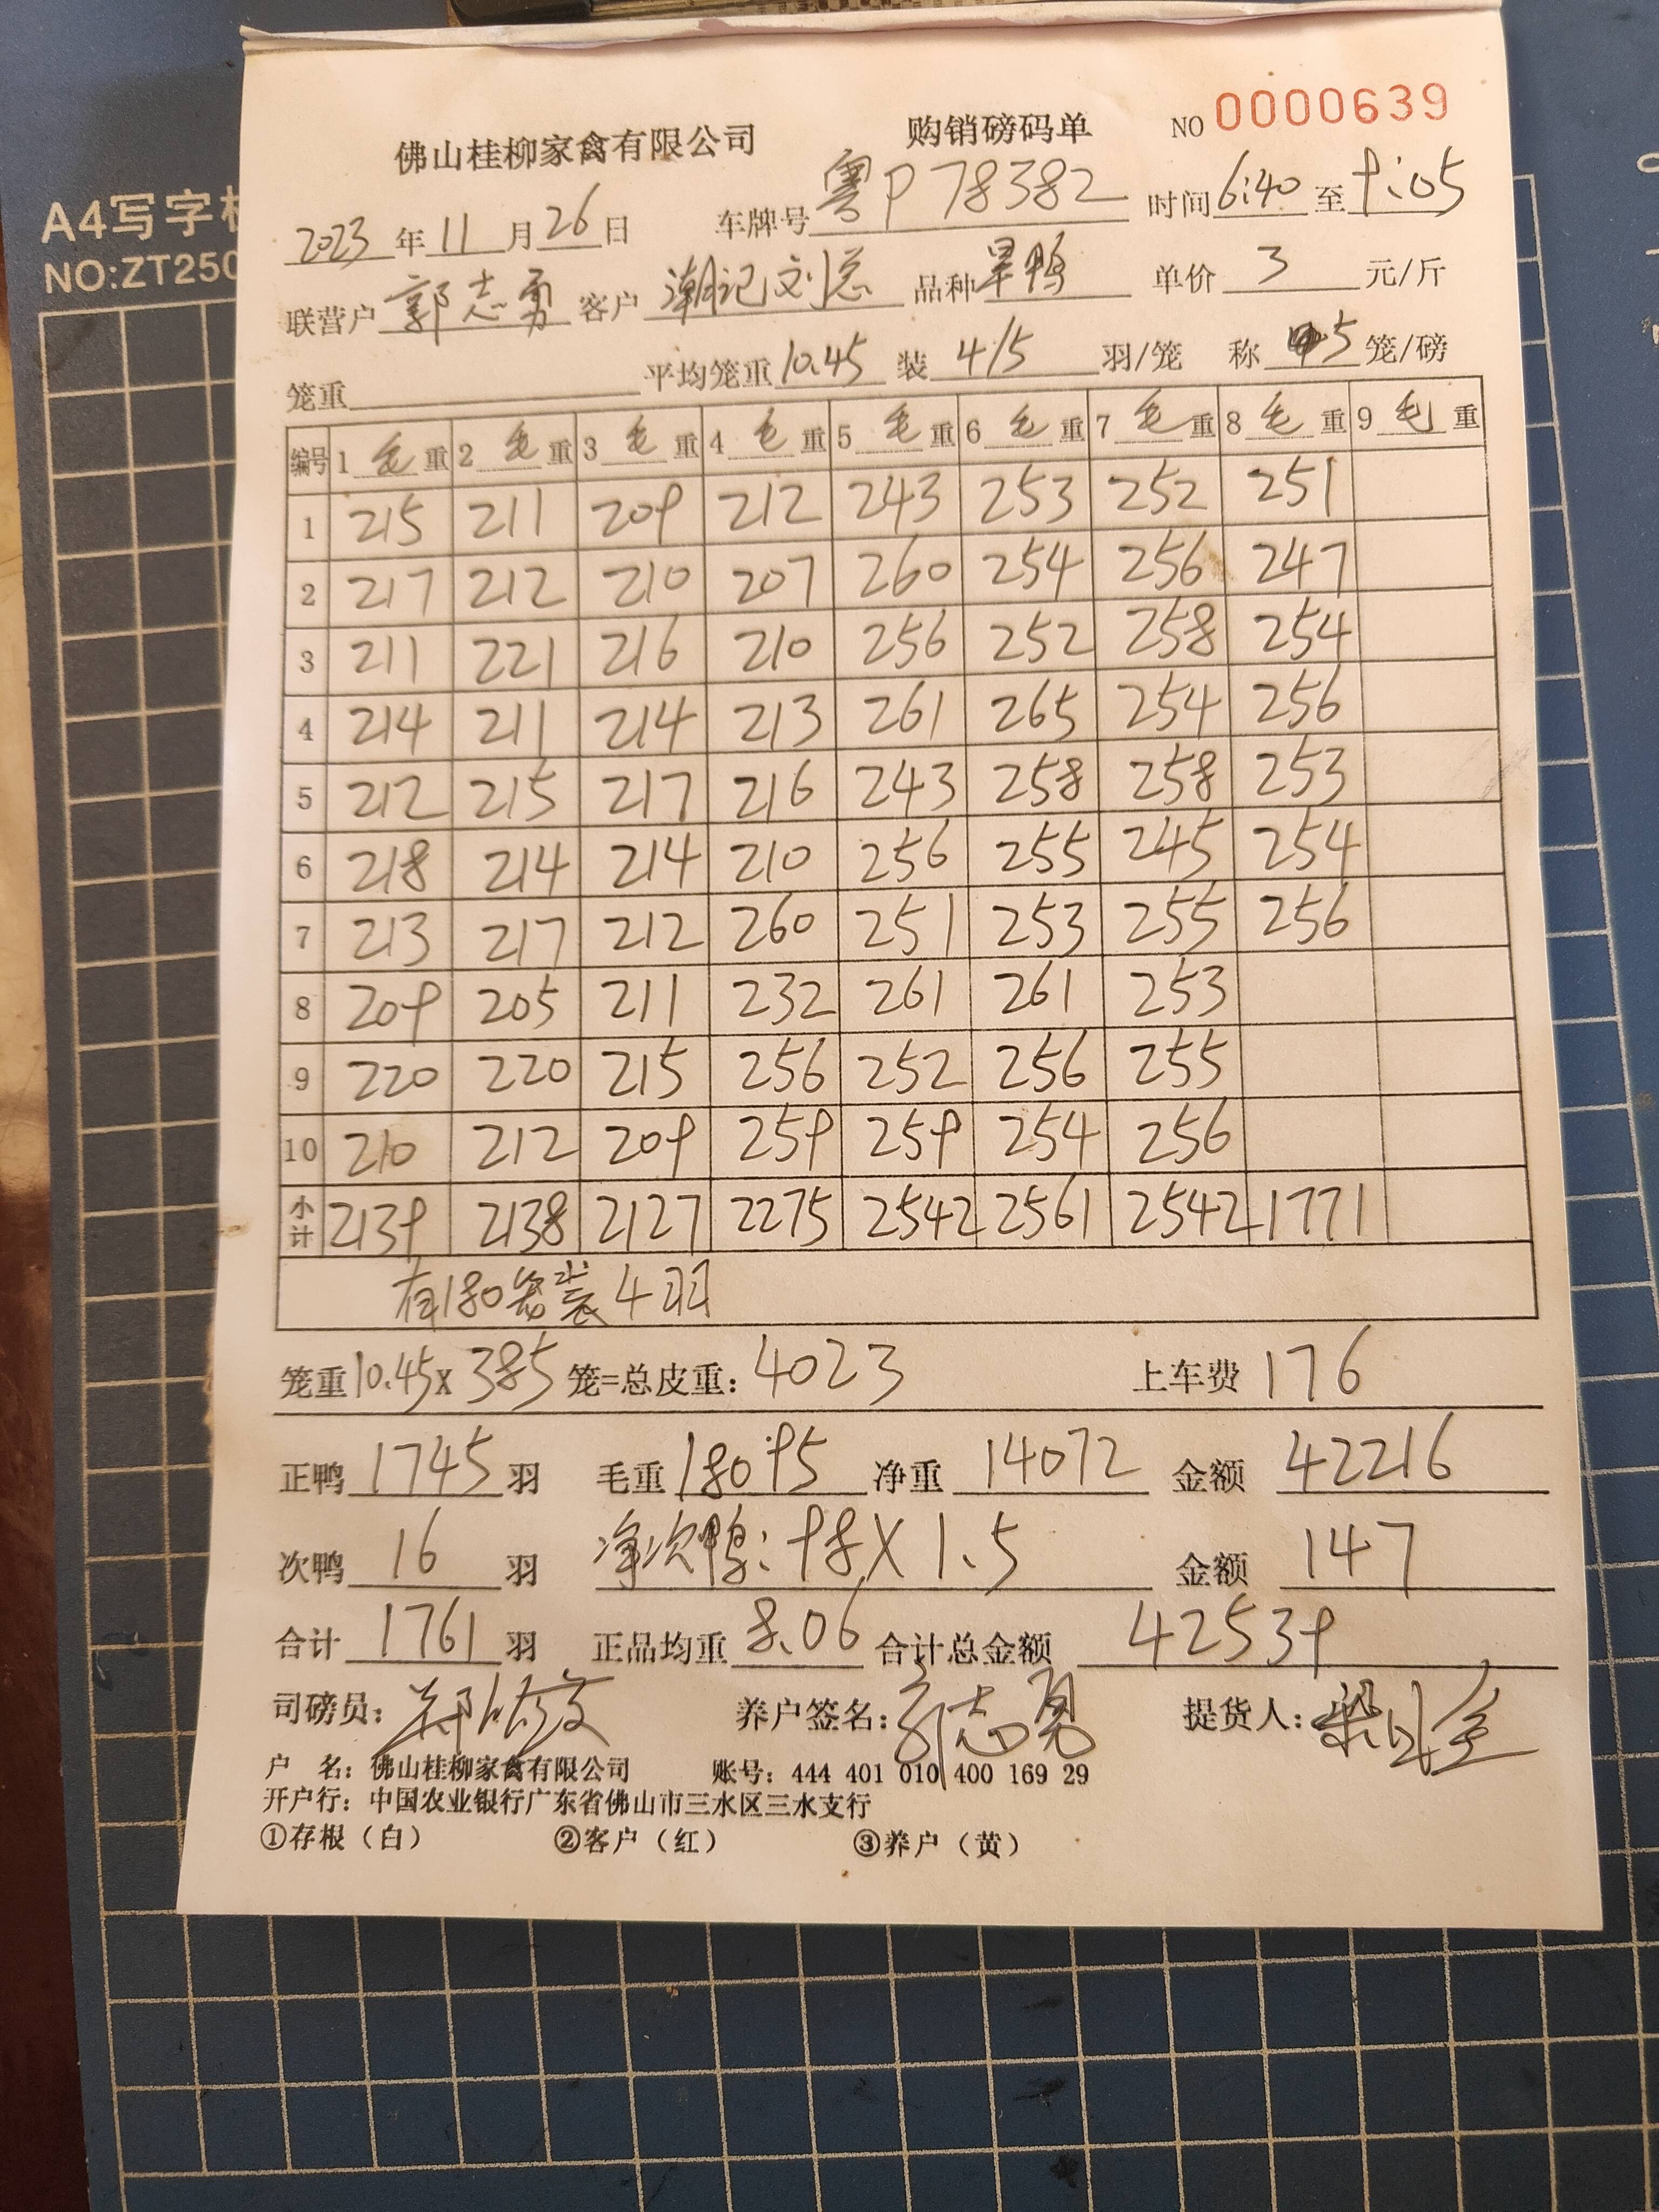 A4写字
NO:ZT250
佛山桂柳家禽有限公司 购销磅码单 NO 0000639
2023 年 11 月 26 日 车牌号 粤P78382 时间 6:40 至 9:05
联营户 郭志勇 客户 潮记刘总 品种 旱鸭 单价 3 元/斤
笼重 平均笼重 10.45 装 4/5 羽/笼 称 5 笼/磅
编号 1 毛 重 2 毛 重 3 毛 重 4 毛 重 5 毛 重 6 毛 重 7 毛 重 8 毛 重 9 毛 重
1 215 211 209 212 243 253 252 251
2 217 212 210 207 260 254 256 247
3 211 221 216 210 256 252 258 254
4 214 211 214 213 261 265 254 256
5 212 215 217 216 243 258 258 253
6 218 214 214 210 256 255 245 254
7 213 217 212 260 251 253 255 256
8 209 205 211 232 261 261 253
9 220 220 215 256 252 256 255
10 210 212 209 259 259 254 256
小计 2139 2138 2127 2275 2542 2561 2542 1771
有180笼装4羽
笼重 10.45 x 385 笼=总皮重: 4023 上车费 176
正鸭 1745 羽 毛重 18095 净重 14072 金额 42216
次鸭 16 羽 净次鸭: 98 X 1.5 金额 147
合计 1761 羽 正品均重 8.06 合计总金额 42539
司磅员: 养户签名: 郭志勇 提货人:
户 名: 佛山桂柳家禽有限公司 账号: 444 401 010 400 169 29
开户行: 中国农业银行广东省佛山市三水区三水支行
①存根（白） ②客户（红） ③养户（黄）